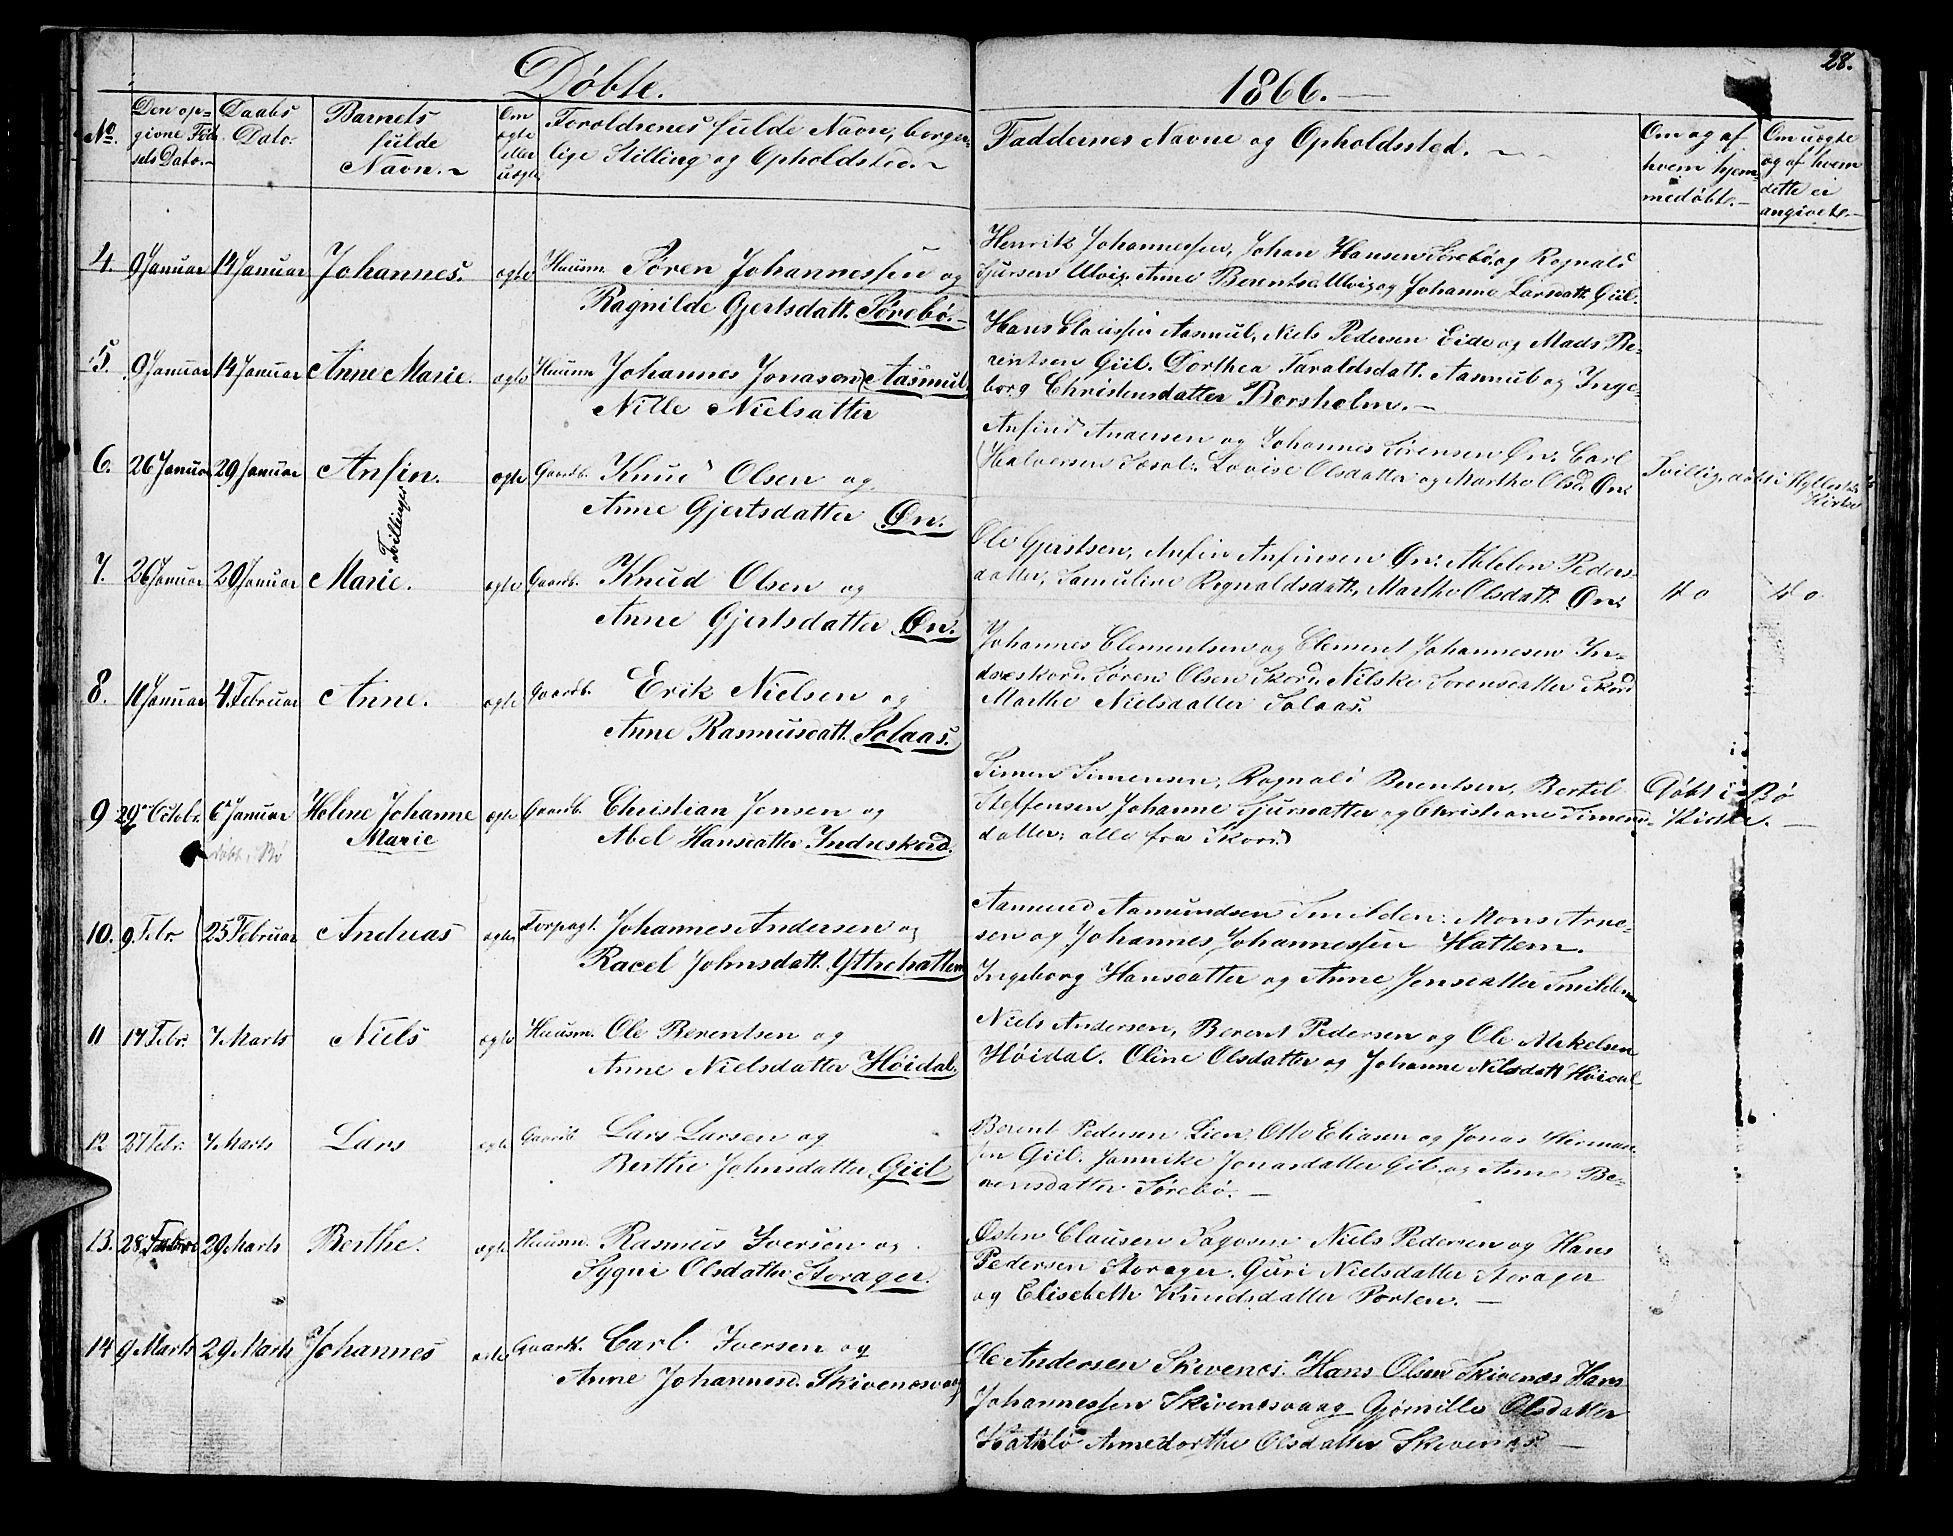 28.
Døbte. 1866.
No.
Den op-
givne Fød-
sels Dato.
Daabs
Dato.
Barnets
fulde
Navn.
Om
ægte
eller
uægte
Foreldrenes fulde Navne, borger-
lige Stilling og Opholdsted.
Faddernes Navne og Opholdssted.
Om og af
hvem hjem-
medøbt.
Om uægte
og af hvem
dette er
angivet.
4. 9 Januar 14 Januar Johannes. ægte Huusm. Søren Johannessen og
Ragnilde Gjertsdatt. Sørebø.
Henrik Johannessen, Johan Hansen Sørebø og Rognald
Sjursen Ulvig, Anne Berentsd. Ulvig og Johanne Larsdatt. Giil.
5. 9 Januar 14 Januar Anne Marie. ægte Huusm Johannes Jonasen Aasmul
Nille Nielsatter
Hans Clausen Aasmul, Niels Pedersen Eide og Mads Be-
rentsen Giil. Dorthea Taraldsdatt. Aasmul og Inge-
borg Christensdatter Borsholm.
6. 26 Januar 29 Januar Anfin. ægte Gaardb. Knud Olsen og
Anne Gjertsdatter Øn.
Anfind Andersen og Johannes Sørensen Øn. Carl
Halversen Lovise Olsdatter og Marthe Olsd. Øn.
Tvilling, døbt i Kirke
Tvillinger
7. 26 Januar 29 Januar Marie. ægte Gaardb. Knud Olsen og
Anne Gjertsdatter Øn.
Ole Gjertsen, Anfin Anfinsen Øn. Peders-
datter, Samuline Rognaldsdatt. Marthe Olsdatt. Øn.
do do
8. 11 Januar 4. Februar Anne. ægte Gaardb. Erik Nielsen og
Anne Rasmusdatt. Solaas.
Johannes Clementsen og Clement Johannesen In-
dreskord. Søren Olsen Skord. Nilske Sørensdatter Skord
Marthe Nielsdatter Solaas.
9 29 Octobr. 6 Januar Helene Johanne
Marie
ægte Gaardb. Christian Jensen og
Abel Hansdatter Indreskord.
døbt i Bø
Simen Simensen, Rognald Berentsen, Bertel
Steffensen, Johanne Sjursdatter og Christiane Simens-
datter, alle fra Skord
Døbt i Bø
Kirke.
10. 9 Febr. 25 Februar Andreas ægte Forpagt. Johannes Andersen og
Racel Johnsdatt. Ytrehatlem
Aamund Aamundsen Smilden. Mons Arne-
sen og Johannes Johannessen Hatlem.
Ingeborg Hansdatter og Anne Jensdatter Smilden
11 17 Febr. 7 Marts Niels ægte Huusm. Ole Berentsen og
Anne Nielsdatter Høidal.
Niels Andersen, Berent Pedersen og Ole Mekelsen
Høidal. Oline Olsdatter og Johanne Nilsdatt Høidal
12 27 Febr. 7 Marts Lars ægte Gaardb Lars Larsen og
Berthe Johnsdatter Giil
Berent Pedersen Lien, Otto Eliasen og Jonas Herman-
sen Giil. Jannike Jonasdatter Giil og Anne Be-
rensdatter Sørebø.
13. 28 Febr 29 Marts Berthe. ægte Huusm. Rasmus Iversen og
Sygni Olsdatter Storager.
Østen Clausen Niels Pedersen og Hans
Pedersen Storager. Guri Nielsdatter Storager
og Elisebeth Knudsdatter Porten.
14 9 Marts 29 Marts Johannes ægte Gaardb. Carl Iversen og
Anne Johannesd. Skivenesvaag
Ole Andersen Skivenes. Hans Olsen Skivenes Hans
Johannessen Skivenesvaag Gjømille Olsdatter
Anne dorthe Olsdatter Skivenes.